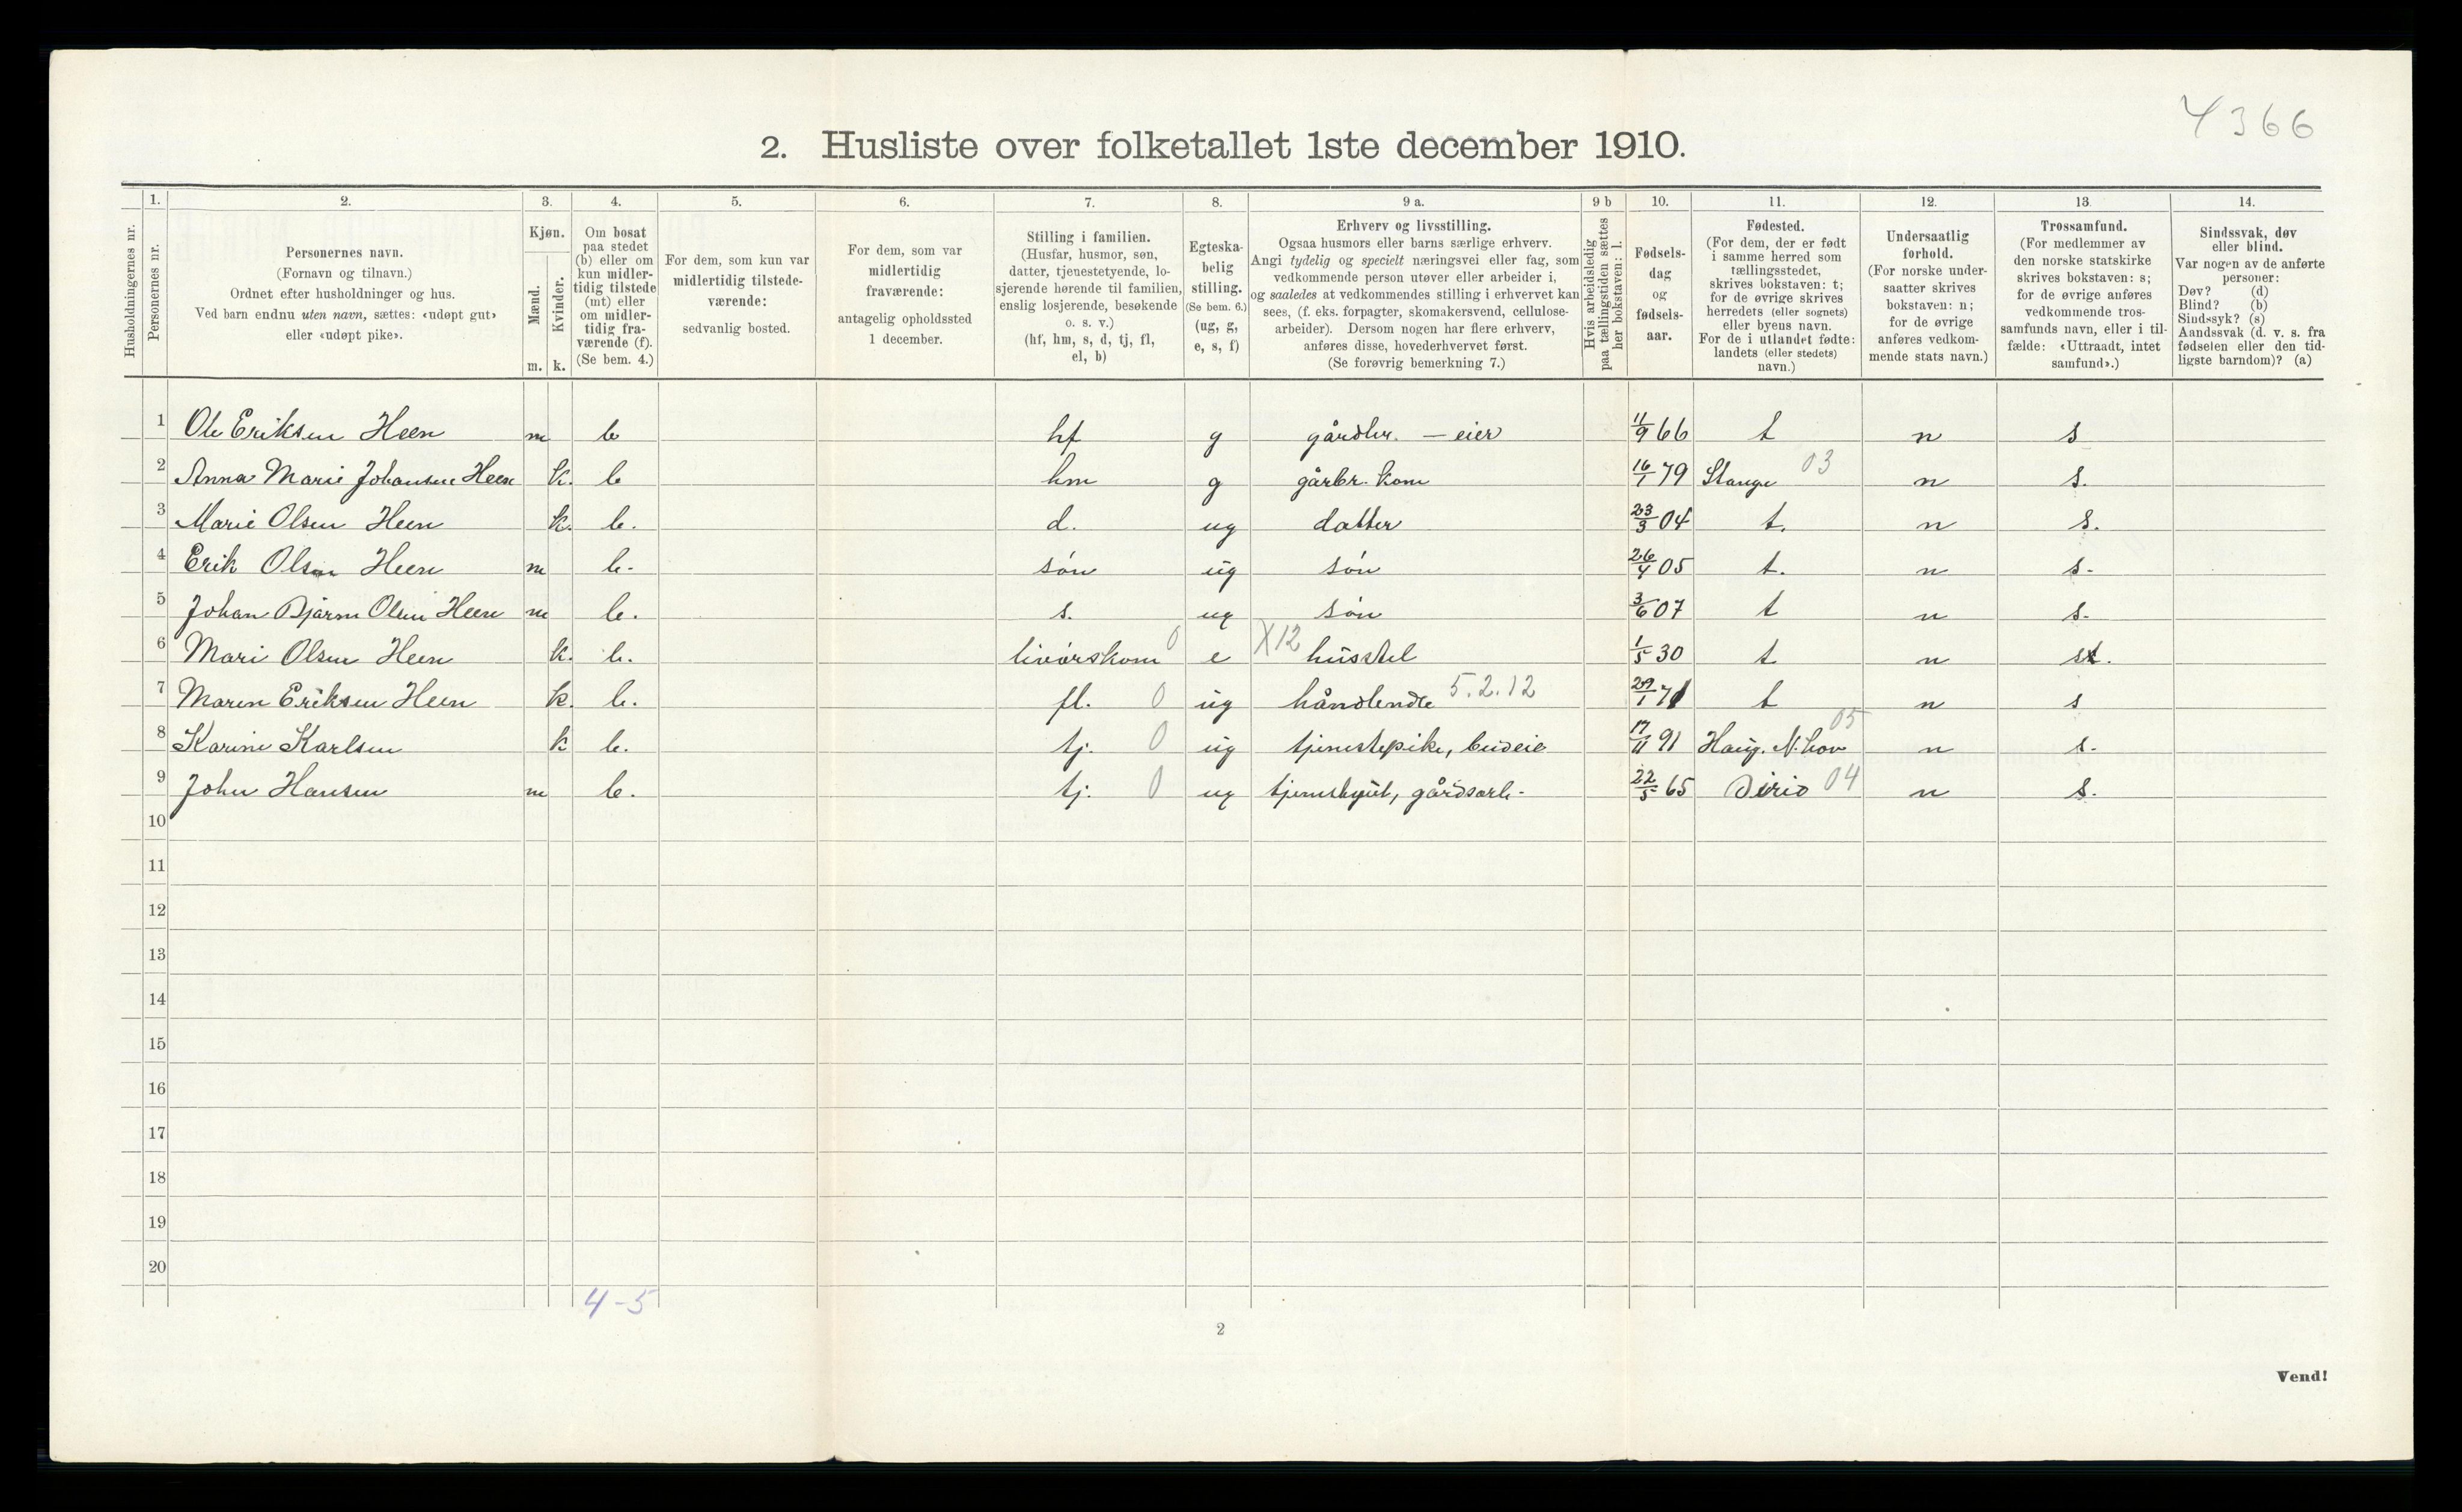 4366
2. Husliste over folketallet 1ste december 1910.
Husholdningernes nr.
1.
Personernes nr.
2.
Personernes navn.
(Fornavn og tilnavn.)
Ordnet efter husholdninger og hus.
Ved barn endnu uten navn, sættes: «udøpt gut»
eller «udøpt pike».
3.
Kjøn.
Mænd.
Kvinder.
m. k.
4.
Om bosat
paa stedet
(b) eller om
kun midler-
tidig tilstede
(mt) eller
om midler-
tidig fra-
værende (f).
(Se bem. 4.)
5.
For dem, som kun var
midlertidig tilstede-
værende:
sedvanlig bosted.
6.
For dem, som var
midlertidig
fraværende:
antagelig opholdssted
1 december.
7.
Stilling i familien.
(Husfar, husmor, søn,
datter, tjenestetyende, lo-
sjerende hørende til familien,
enslig losjerende, besøkende
o. s. v.)
(hf, hm, s, d, tj, fl,
el, b)
8.
Egteska-
belig
stilling.
(Se bem. 6.)
(ug, g,
e, s, f)
9 a.
Erhverv og livsstilling.
Ogsaa husmors eller barns særlige erhverv.
Angi tydelig og specielt næringsvei eller fag, som
vedkommende person utøver eller arbeider i,
og saaledes at vedkommendes stilling i erhvervet kan
sees, (f. eks. forpagter, skomakersvend, cellulose-
arbeider). Dersom nogen har flere erhverv,
anføres disse, hovederhvervet først.
(Se forøvrig bemerkning 7.)
9 b
Hvis arbeidsledig
paa tællingstiden sættes
her bokstaven: l.
10.
Fødsels-
dag
og
fødsels-
aar.
11.
Fødested.
(For dem, der er født
i samme herred som
tællingsstedet,
skrives bokstaven: t;
for de øvrige skrives
herredets (eller sognets)
eller byens navn.
For de i utlandet fødte:
landets (eller stedets)
navn.)
12.
Undersaatlig
forhold.
(For norske under-
saatter skrives
bokstaven: n;
for de øvrige
anføres vedkom-
mende stats navn.)
13.
Trossamfund.
(For medlemmer av
den norske statskirke
skrives bokstaven: s;
for de øvrige anføres
vedkommende tros-
samfunds navn, eller i til-
fælde: «Uttraadt, intet
samfund».)
14.
Sindssvak, døv
eller blind.
Var nogen av de anførte
personer:
Døv? (d)
Blind? (b)
Sindssyk? (s)
Aandssvak (d. v. s. fra
fødselen eller den tid-
ligste barndom)? (a)
1 Ole Eriksen Heen m b hf g gårdbr. — eier 11/9 66 t n s
2 Anna Marie Johansen Heen k. b hm g gårbr. kone 16/1 79 Stange 03 n s.
3 Marie Olsen Heen k. b. d. ug datter 23/3 04 t. n s.
4 Erik Olsen Heen m b. søn ug søn 26/4 05 t. n s.
5 Johan Bjarne Olsen Heen m b. s. ug søn 3/6 07 t n s.
6 Mari Olsen Heen k. b. livørskone 0 e X12 husstel 1/5 30 t n s.
7 Maren Eriksen Heen k. b. fl. 0 ug håndlende 5.2.12 29/1 71 t n s
8 Karine Karlsen k b. tj. 0 ug tjenstepike, budeie 17/11 91 Haug. N. 05 n s.
9 John Hansen m b. tj. 0 ug tjenstegut, gårdsarb. 22/5 65 Birid 04 n s.
10
11
12
13
14
15
16
17
18
19
20
4-5
2
Vend!